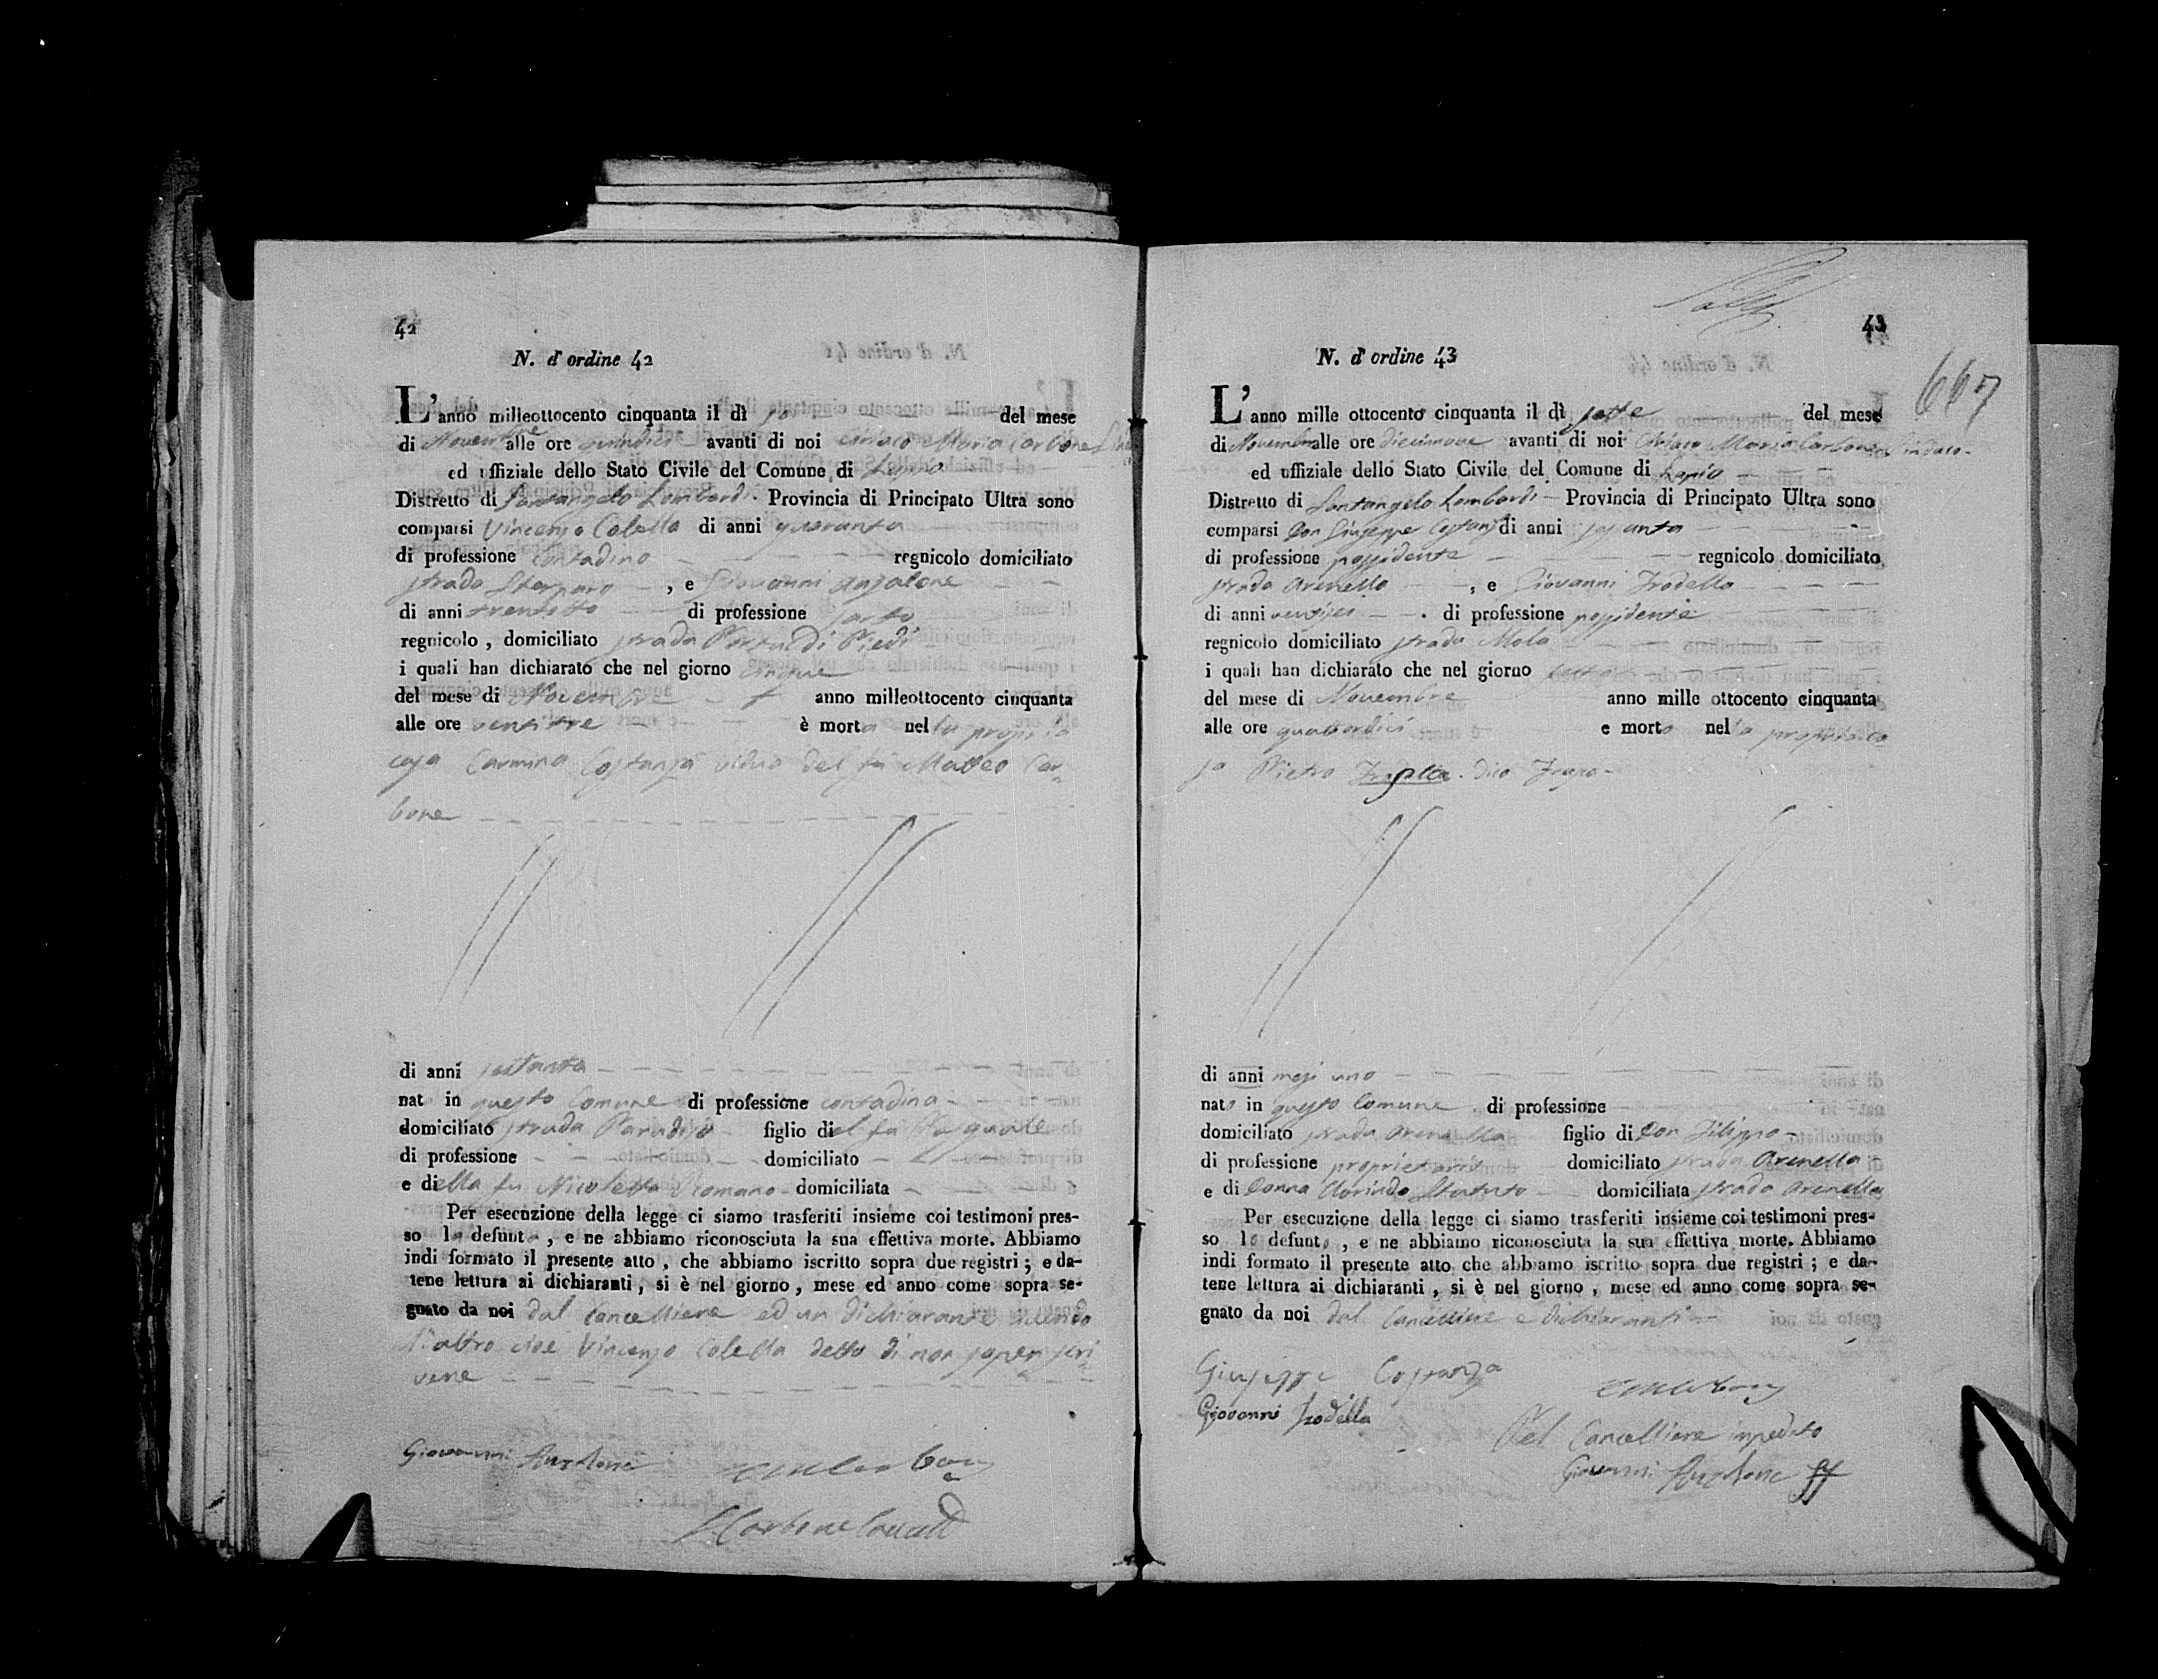 42
N. d' ordine 42
L'anno milleottocento cinquanta il dì del mese
di Novembre alle ore quindici avanti di noi Ciriaco Maria Carbone
ed uffiziale dello Stato Civile del Comune di Lapio
Distretto di Santangelo Lombardi Provincia di Principato Ultra sono
comparsi Vincenzo Colella di anni quaranta
di professione contadino regnicolo domiciliato
strada , e Giovanni Anzalone
di anni trentotto di professione sarto
regnicolo , domiciliato strada Porta di Piedi
i quali han dichiarato che nel giorno cinque
del mese di Novembre anno milleottocento cinquanta
alle ore ventitre è morta nella propria
casa Carmina Costanza vidua del fu Matteo Car-
bone
di anni settanta
nat in questo Comune di professione contadina
domiciliato strada Paradiso figlio del fu Pasquale
di professione domiciliato
e di ella fu Nicoletta Romano domiciliata
Per esecuzione della legge ci siamo trasferiti insieme coi testimoni pres-
so la defunta , e ne abbiamo riconosciuta la sua effettiva morte. Abbiamo
indi formato il presente atto , che abbiamo iscritto sopra due registri ; e da-
tene lettura ai dichiaranti , si è nel giorno , mese ed anno come sopra se-
gnato da noi dal Cancelliere ed un dichiarante avendo
l'altro cioè Vincenzo Colella detto di non saper scri
vere
Giovanni Anzalone
43
667
N. d' ordine 43
L'anno mille ottocento cinquanta il dì sette del mese
di Novembre alle ore diecinnove avanti di noi Ciriaco Maria Carbone Sindaco
ed uffiziale dello Stato Civile del Comune di Lapio
Distretto di Santangelo Lombardi Provincia di Principato Ultra sono
comparsi Don Giuseppe Costanza di anni
di professione possidente regnicolo domiciliato
strada Arenella , e Giovanni Trodella
di anni di professione possidente
regnicolo domiciliato strada Mola
i quali han dichiarato che nel giorno sette
del mese di Novembre anno mille ottocento cinquanta
alle ore quattordici e morto nella propria ca
sa Pietro dico
di anni mesi uno
nato in questo Comune di professione
domiciliato strada Arenella figlio di Don Filippo
di professione proprietario domiciliato strada Arenella
e di Donna Clorinda Statuto domiciliata strada Arenella
Per esecuzione della legge ci siamo trasferiti insieme coi testimoni pres-
so lo defunto , e ne abbiamo riconosciuta la sua effettiva morte. Abbiamo
indi formato il presente atto che abbiamo iscritto sopra due registri ; e da-
tene lettura ai dichiaranti , si è nel giorno , mese ed anno come sopra se-
gnato da noi dal Cancelliere e dichiaranti
Giuseppe Costanza
Giovanni Trodella
Pel Cancelliere impedito
Giovanni Anzalone ff